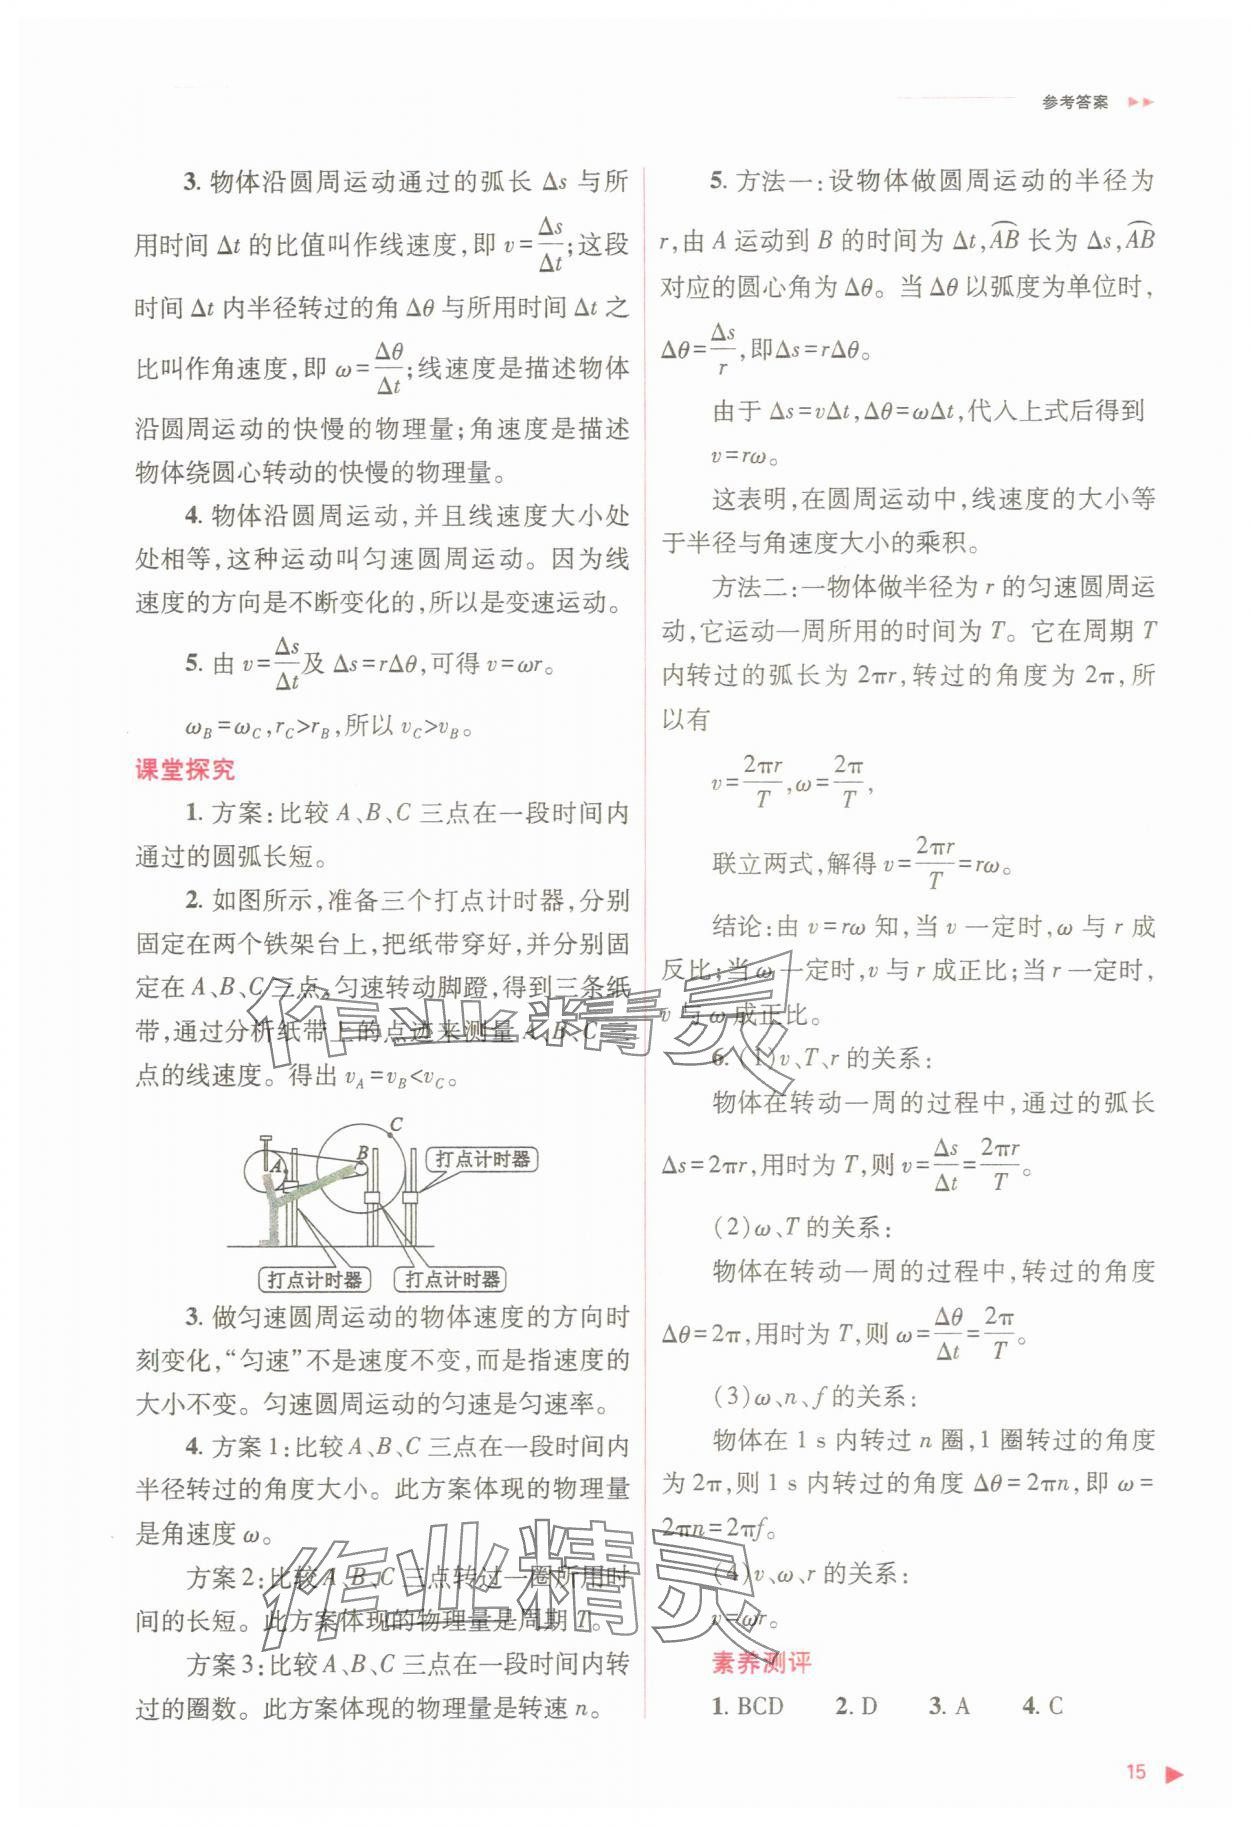 参考答案
3. 物体沿圆周运动通过的弧长 Δs 与所
用时间 Δt 的比值叫作线速度,即 v=Δs/Δt;这段
时间 Δt 内半径转过的角 Δθ 与所用时间 Δt 之
比叫作角速度,即 ω=Δθ/Δt;线速度是描述物体
沿圆周运动的快慢的物理量;角速度是描述
物体绕圆心转动的快慢的物理量。
4. 物体沿圆周运动,并且线速度大小处
处相等,这种运动叫匀速圆周运动。因为线
速度的方向是不断变化的,所以是变速运动。
5. 由 v=Δs/Δt及 Δs=rΔθ,可得 v=ωr。
ω_B=ω_C,r_C>r_B,所以 v_C>v_B。
课堂探究
1. 方案:比较 A、B、C 三点在一段时间内
通过的圆弧长短。
2. 如图所示,准备三个打点计时器,分别
固定在两个铁架台上,把纸带穿好,并分别固
定在 A、B、C 三点,匀速转动脚蹬,得到三条纸
带,通过分析纸带上的点迹来测量 A、B、C 三
点的线速度。得出 v_A=v_B<v_C。
C
B
A
打点计时器
打点计时器
打点计时器
3. 做匀速圆周运动的物体速度的方向时
刻变化,“匀速”不是速度不变,而是指速度的
大小不变。匀速圆周运动的匀速是匀速率。
4. 方案 1:比较 A、B、C 三点在一段时间内
半径转过的角度大小。此方案体现的物理量
是角速度 ω。
方案 2:比较 A、B、C 三点转过一圈所用时
间的长短。此方案体现的物理量是周期 T。
方案 3:比较 A、B、C 三点在一段时间内转
过的圈数。此方案体现的物理量是转速 n。
5. 方法一:设物体做圆周运动的半径为
r,由 A 运动到 B 的时间为 Δt,⌒AB 长为 Δs,⌒AB
对应的圆心角为 Δθ。当 Δθ 以弧度为单位时,
Δθ=Δs/r,即Δs=rΔθ。
由于 Δs=vΔt,Δθ=ωΔt,代入上式后得到
v=rω。
这表明,在圆周运动中,线速度的大小等
于半径与角速度大小的乘积。
方法二:一物体做半径为 r 的匀速圆周运
动,它运动一周所用的时间为 T。它在周期 T
内转过的弧长为 2πr,转过的角度为 2π,所
以有
v=2πr/T,ω=2π/T,
联立两式,解得 v=2πr/T=rω。
结论:由 v=rω 知,当 v 一定时,ω 与 r 成
反比;当 ω 一定时,v 与 r 成正比;当 r 一定时,
v 与 ω 成正比。
6. (1)v、T、r 的关系:
物体在转动一周的过程中,通过的弧长
Δs=2πr,用时为 T,则 v=Δs/Δt=2πr/T。
(2)ω、T 的关系:
物体在转动一周的过程中,转过的角度
Δθ=2π,用时为 T,则 ω=Δθ/Δt=2π/T。
(3)ω、n、f 的关系:
物体在 1 s 内转过 n 圈,1 圈转过的角度
为 2π,则 1 s 内转过的角度 Δθ=2πn,即 ω=
2πn=2πf。
(4)v、ω、r 的关系:
v=ωr。
素养测评
1. BCD 2. D 3. A 4. C
15
作业精灵
作业精灵